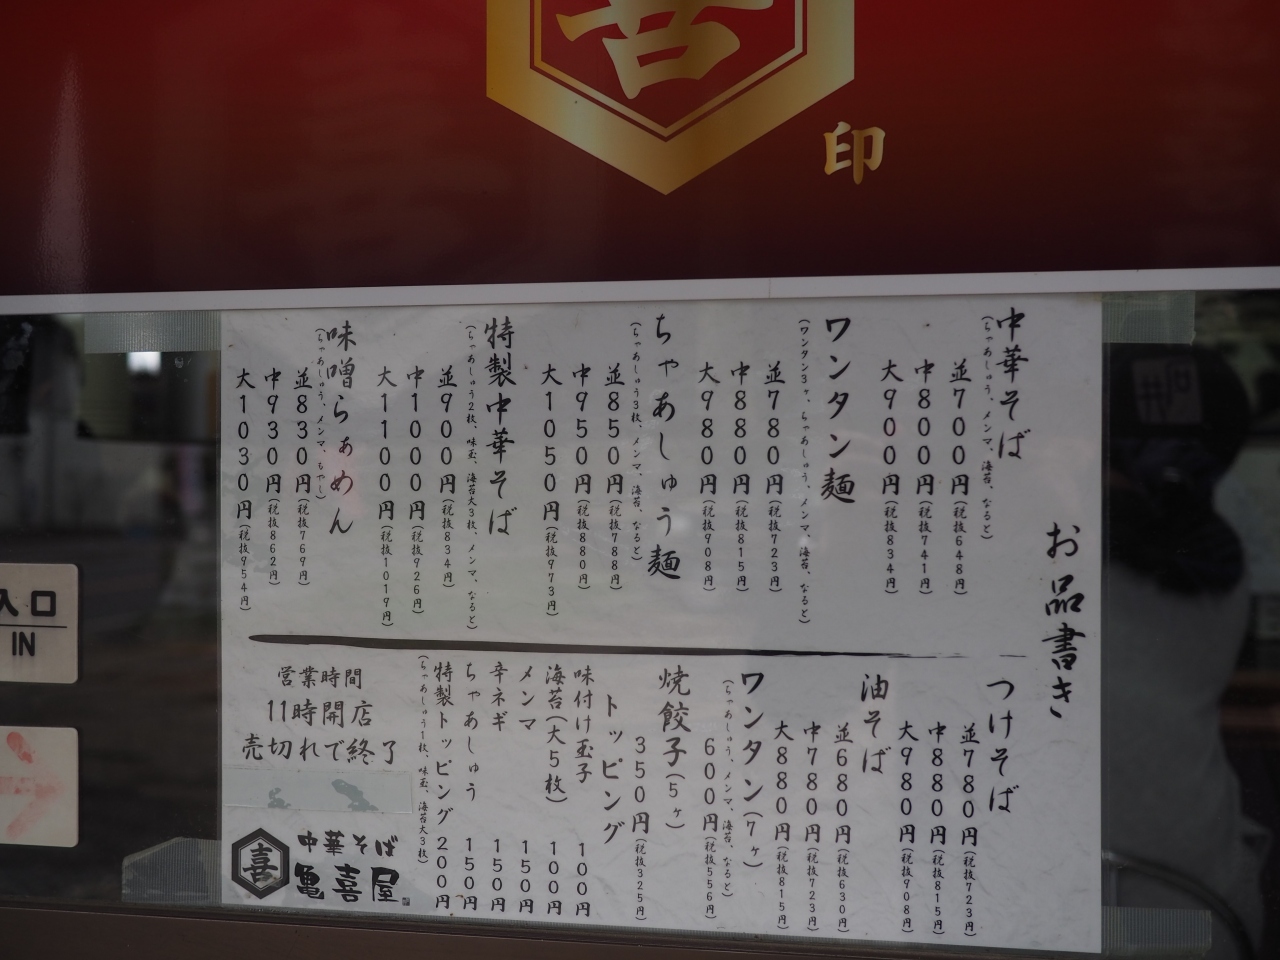 喜
印
お品書き
中華そば
(ちゃあしゅう、メンマ、海苔、なると)
並700円(税抜648円)
中800円(税抜741円)
大900円(税抜834円)
ワンタン麺
(ワンタン3ヶ、ちゃあしゅう、メンマ、海苔、なると)
並780円(税抜723円)
中880円(税抜815円)
大980円(税抜908円)
ちゃあしゅう麺
(ちゃあしゅう3枚、メンマ、海苔、なると)
並850円(税抜788円)
中950円(税抜880円)
大1050円(税抜973円)
特製中華そば
(ちゃあしゅう2枚、味玉、海苔大3枚、メンマ、なると)
並900円(税抜834円)
中1000円(税抜926円)
大1100円(税抜1019円)
味噌らぁめん
(ちゃあしゅう、メンマ、もやし)
並830円(税抜769円)
中930円(税抜862円)
大1030円(税抜954円)
つけそば
並780円(税抜723円)
中880円(税抜815円)
大980円(税抜908円)
油そば
並680円(税抜630円)
中780円(税抜723円)
大880円(税抜815円)
ワンタン(7ヶ)
(ちゃあしゅう、メンマ、海苔、なると)
600円(税抜556円)
焼餃子(5ヶ)
350円(税抜325円)
トッピング
味付け玉子 100円
海苔(大5枚) 100円
メンマ 150円
辛ネギ 150円
ちゃあしゅう 150円
特製トッピング 200円
(ちゃあしゅう1枚、味玉、海苔大3枚)
営業時間
11時開店
売切れで終了
喜
中華そば
亀喜屋
入口
IN